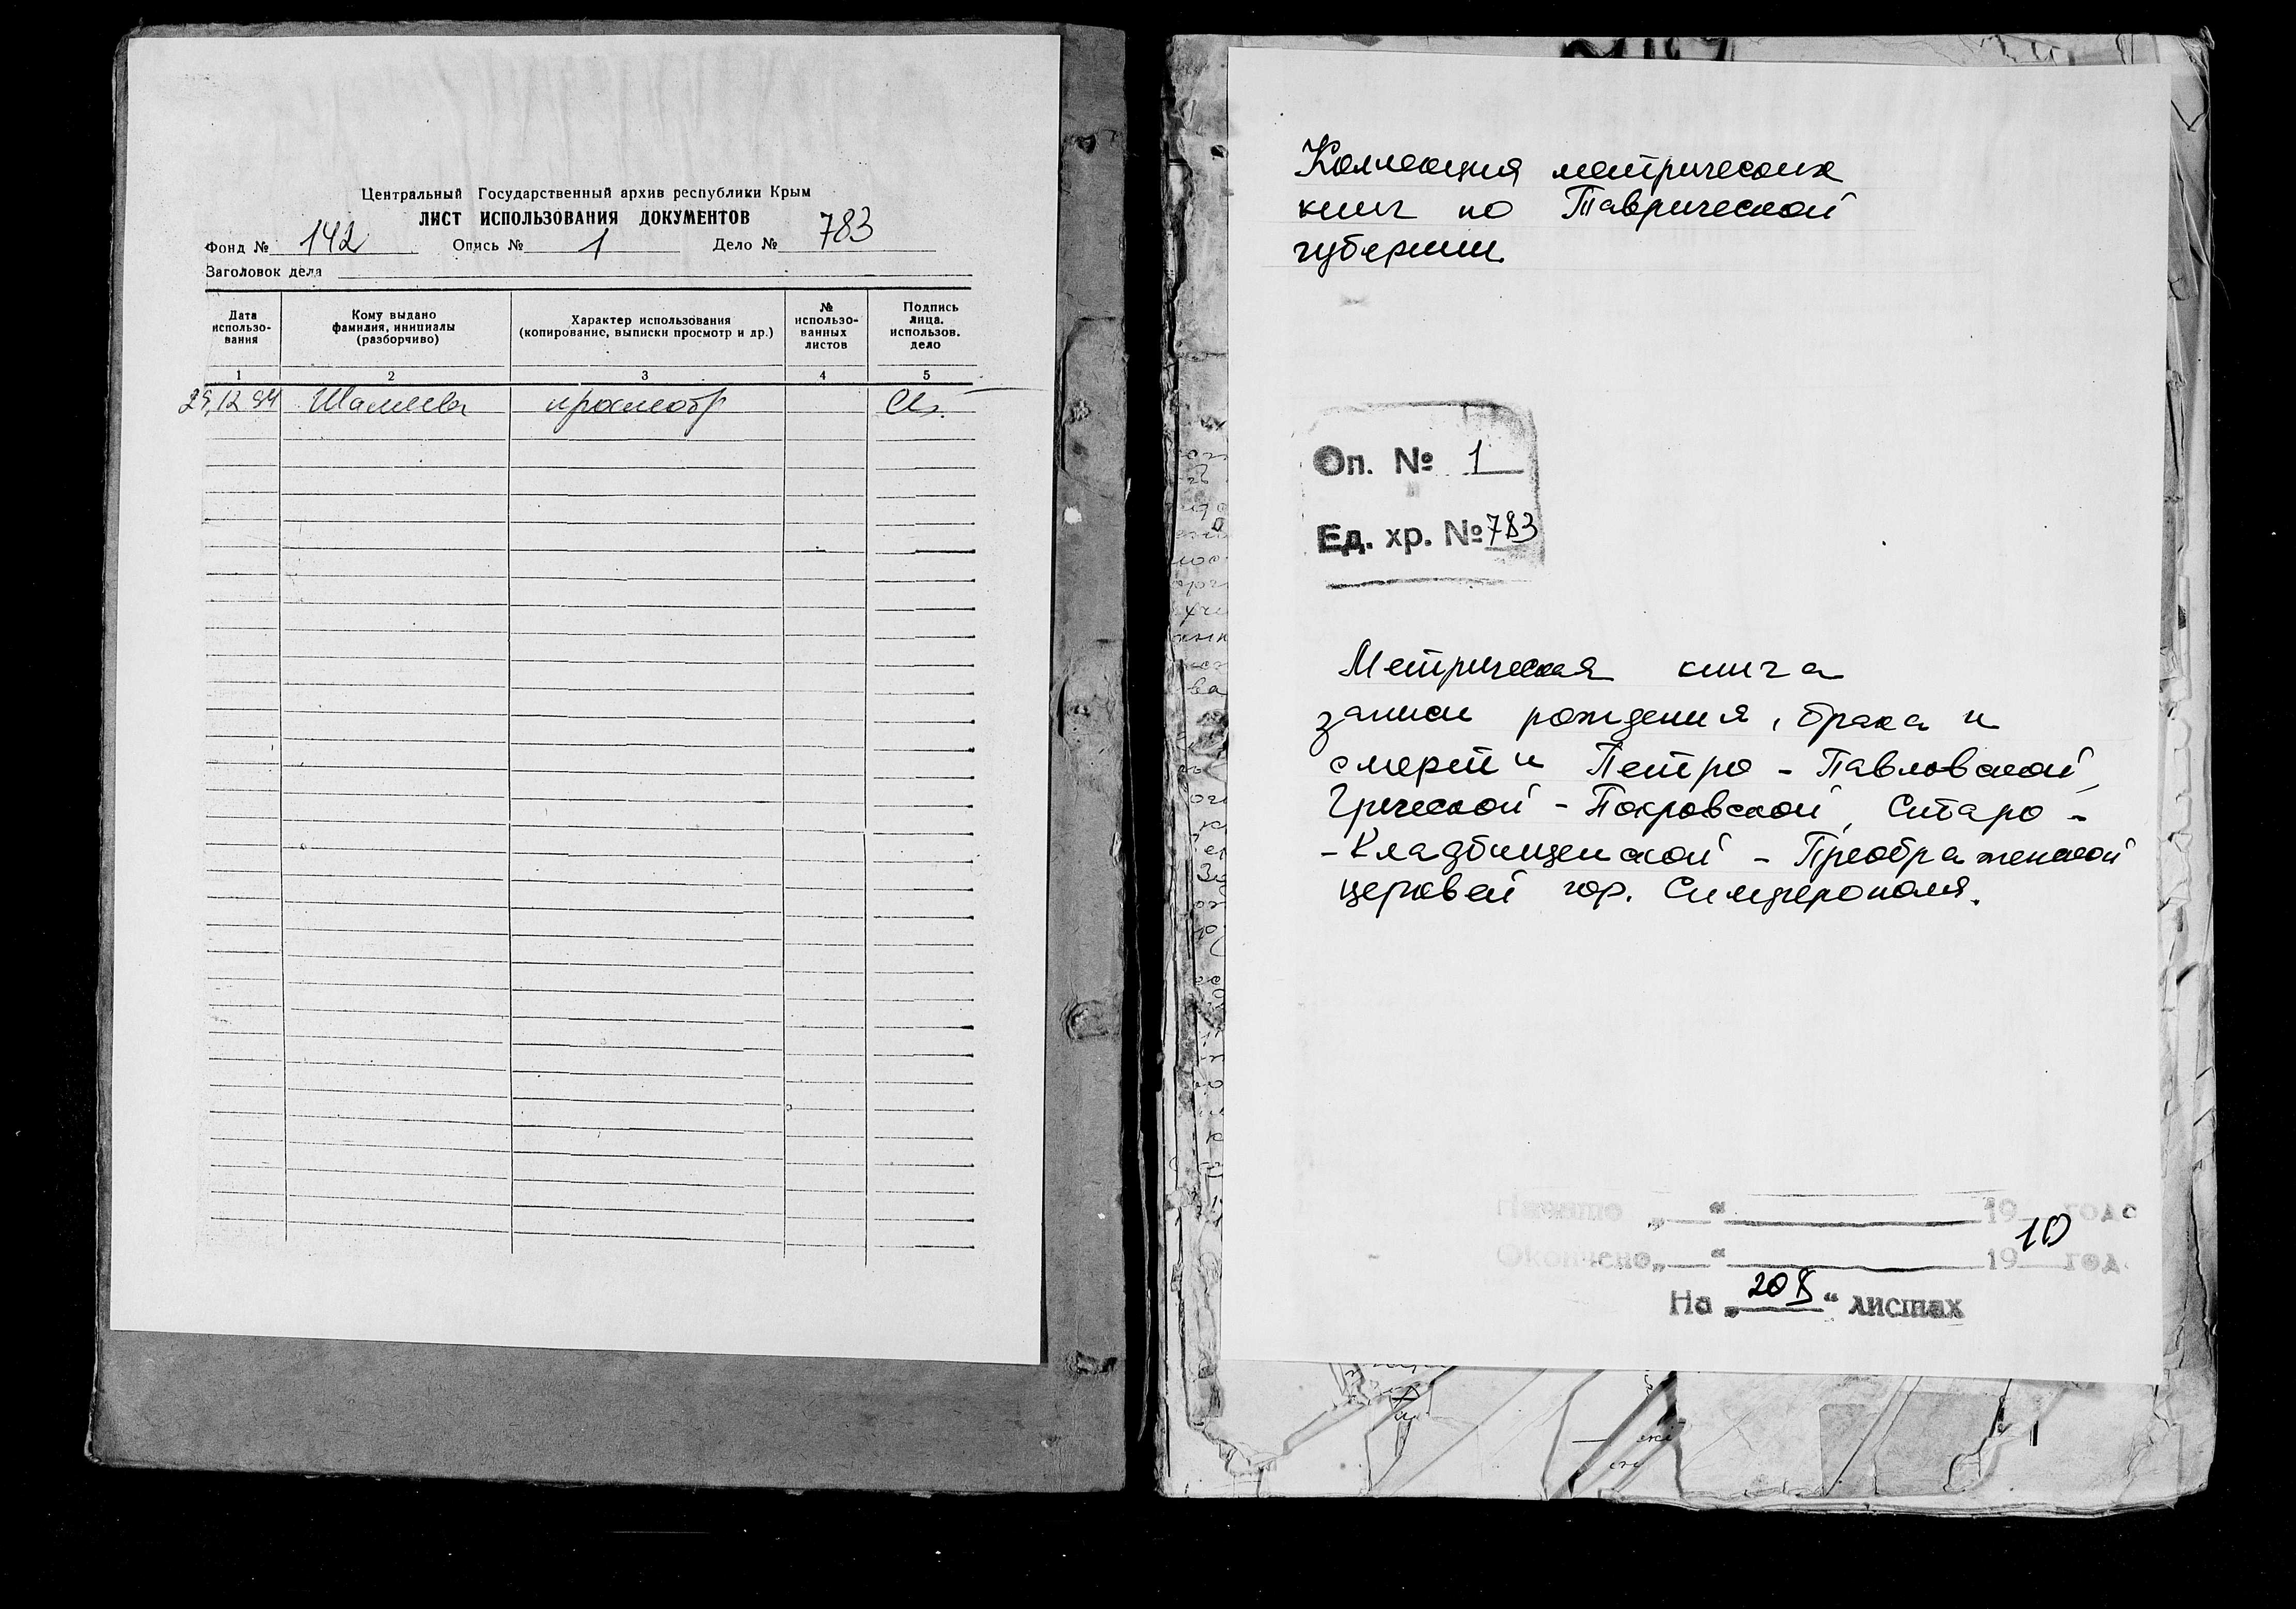 Центральный Государственный архив республики Крым
ЛИСТ ИСПОЛЬЗОВАНИЯ ДОКУМЕНТОВ
Фонд № 142 Опись № 1 Дело № 783
Заголовок дела
Дата использо-вания
Кому выдано фамилия, инициалы (разборчиво)
Характер использования (копирование, выписки просмотр и др.)
№ использо-ванных листов
Подпись лица. использов. дело
1 2 3 4 5
12 94 просмотр
Коллекция метрических
книг по Таврической
губернии
Оп. № 1
Ед. хр. № 783
Метрическая книга
записи рождения, брака и
смерти Петро-Павловской,
Греческой-Покровской, Старо-
-Кладбищенской-Преображенской
церквей гор. Симферополя.
Начато „ “ 19 года
Окончено „ “ 1910 год
На „208“ листах